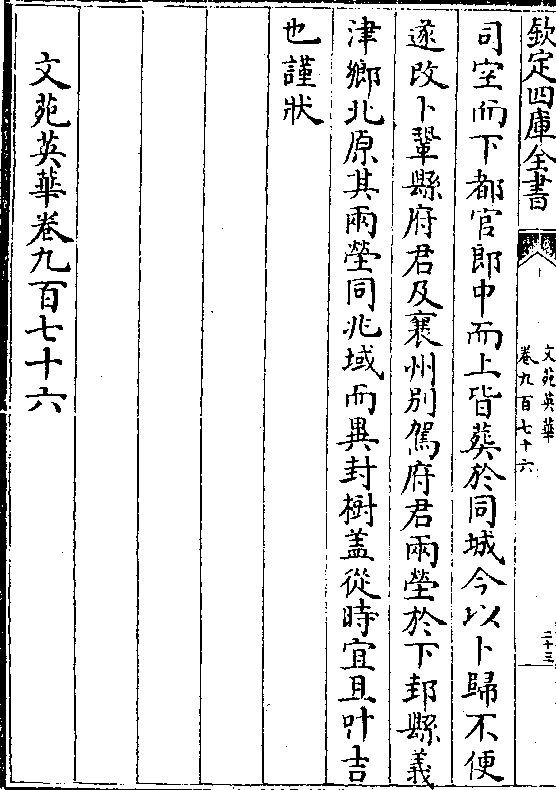 欽定四庫全書
文苑英華
卷九百七十六
二十三
司空而下都官郎中而上皆葬於同城今以卜歸不便
遂改卜鞏縣府君及襄州別駕府君兩塋於下邽縣義
津鄉北原其兩塋同兆域而異封樹盖從時宜且叶吉
也謹狀
文苑英華卷九百七十六